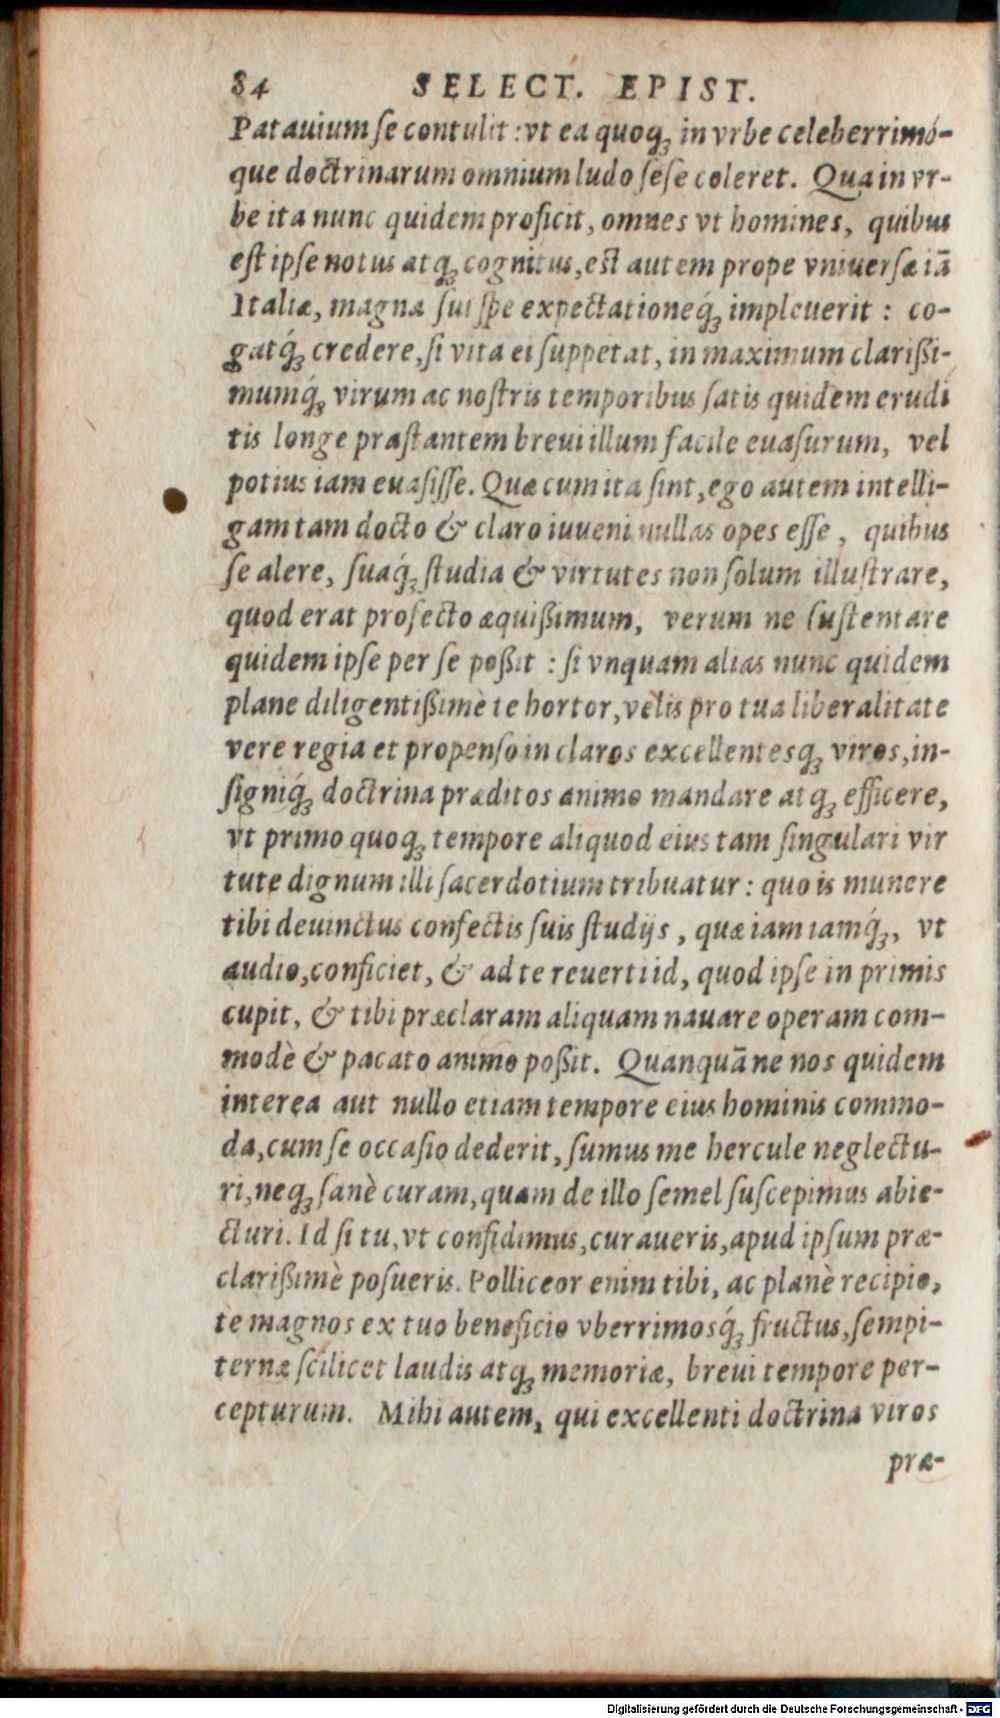 84 SELECT. EPIST.
Patauium se contulit: vt ea quoq; in vrbe celeberrimó-
que doctrinarum omnium ludo sese coleret. Qua in vr-
be ita nunc quidem proficit, omnes vt homines, quibus
est ipse notus atq; cognitus, est autem prope vniuersæ iã
Italiæ, magna sui spe expectationeq́; impleuerit: co-
gatq́; credere, si vita ei suppetat, in maximum clarißi-
mumq́; virum ac nostris temporibus satis quidem erudi
tis longe præstantem breui illum facile euasurum, vel
potius iam euasisse. Quæ cum ita sint, ego autem intelli-
gam tam docto & claro iuueni nullas opes esse, quibus
se alere, suaq́; studia & virtutes non solum illustrare,
quod erat profecto æquißimum, verum ne sustentare
quidem ipse per se poßit: si vnquam alias nunc quidem
plane diligentißimè te hortor, velis pro tua liberalitate
vere regia et propenso in claros excellentesq; viros, in-
signiq́; doctrina præditos animo mandare atq; efficere,
vt primo quoq; tempore aliquod eius tam singulari vir
tute dignum illi sacerdotium tribuatur: quo is munere
tibi deuinctus confectis suis studijs, quæ iam iamq́;, vt
audio, conficiet, & ad te reuerti id, quod ipse in primis
cupit, & tibi præclaram aliquam nauare operam com-
modè & pacato animo poßit. Quanquã ne nos quidem
interea aut nullo etiam tempore eius hominis commo-
da, cum se occasio dederit, sumus me hercule neglectu-
ri, neq; sanè curam, quam de illo semel suscepimus abie-
cturi. Id si tu, vt confidimus, curaueris, apud ipsum præ-
clarißimè posueris. Polliceor enim tibi, ac planè recipio,
te magnos ex tuo beneficio vberrimosq́; fructus, sempi-
ternæ scilicet laudis atq; memoriæ, breui tempore per-
cepturum. Mihi autem, qui excellenti doctrina viros
præ-
Digitalisierung gefördert durch die Deutsche Forschungsgemeinschaft - DFG